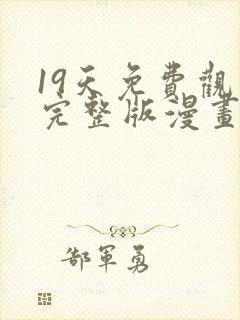 19天免費觀
完整版漫畫
郜軍勇